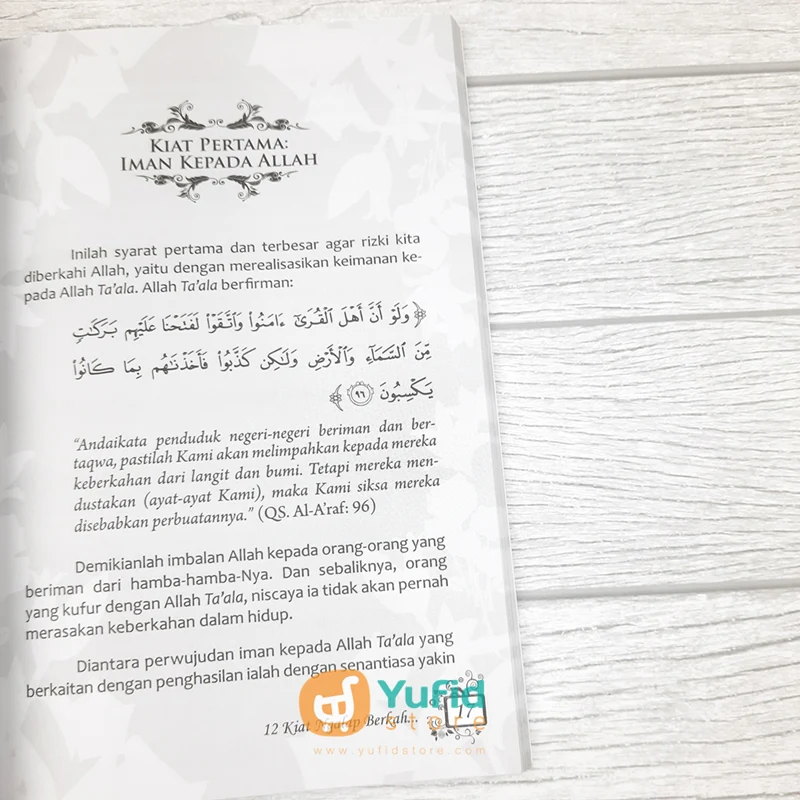 KIAT PERTAMA:
IMAN KEPADA ALLAH
Inilah syarat pertama dan terbesar agar rizki kita
diberkahi Allah, yaitu dengan merealisasikan keimanan ke-
pada Allah Ta'ala. Allah Ta'ala berfirman:
﴿ وَلَوْ أَنَّ أَهْلَ ٱلْقُرَىٰٓ ءَامَنُوا۟ وَٱتَّقَوْا۟ لَفَتَحْنَا عَلَيْهِم بَرَكَـٰتٍ
مِّنَ ٱلسَّمَآءِ وَٱلْأَرْضِ وَلَـٰكِن كَذَّبُوا۟ فَأَخَذْنَـٰهُم بِمَا كَانُوا۟
يَكْسِبُونَ ٩٦ ﴾
"Andaikata penduduk negeri-negeri beriman dan ber-
taqwa, pastilah Kami akan melimpahkan kepada mereka
keberkahan dari langit dan bumi. Tetapi mereka men-
dustakan (ayat-ayat Kami), maka Kami siksa mereka
disebabkan perbuatannya." (QS. Al-A'raf: 96)
Demikianlah imbalan Allah kepada orang-orang yang
beriman dari hamba-hamba-Nya. Dan sebaliknya, orang
yang kufur dengan Allah Ta'ala, niscaya ia tidak akan pernah
merasakan keberkahan dalam hidup.
Diantara perwujudan iman kepada Allah Ta'ala yang
berkaitan dengan penghasilan ialah dengan senantiasa yakin
12 Kiat Ngalap Berkah... 17
Yufid
store
www.yufidstore.com